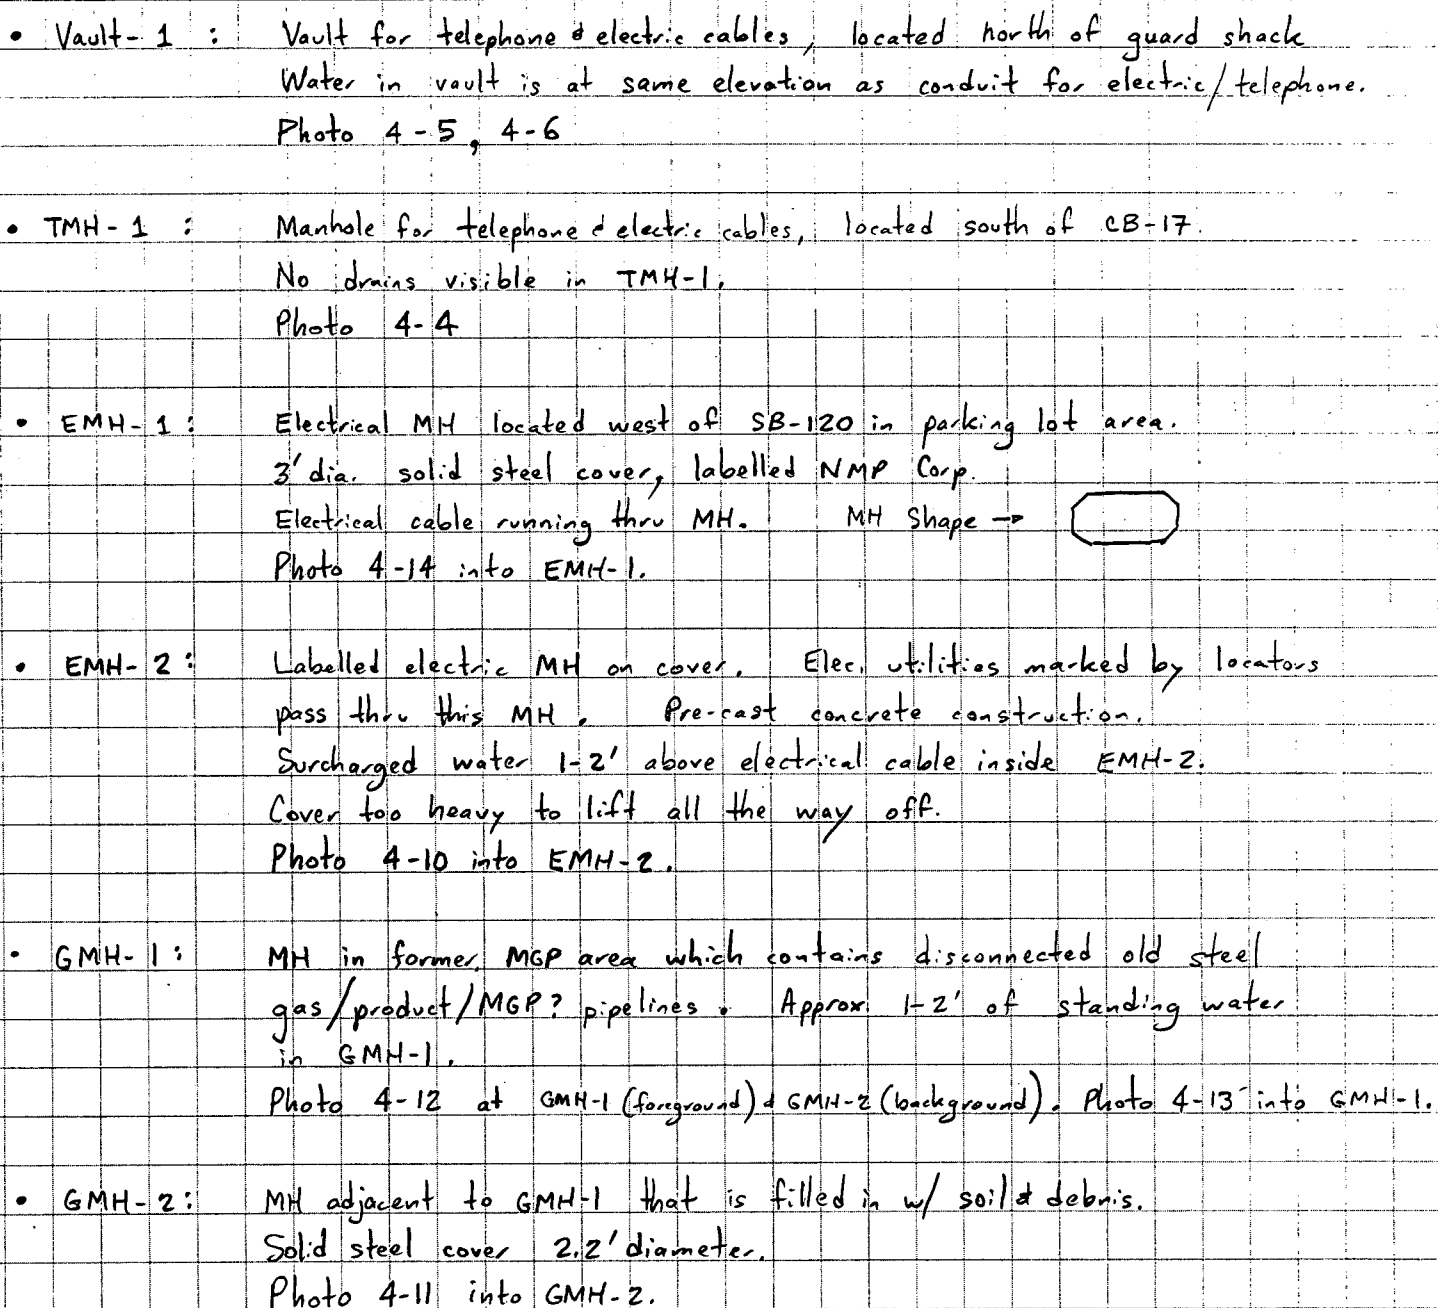 • Vault-1 : Vault for telephone & electric cables, located north of guard shack
Water in vault is at same elevation as conduit for electric/telephone.
Photo 4-5, 4-6
• TMH-1 : Manhole for telephone & electric cables, located south of CB-17.
No drains visible in TMH-1.
Photo 4-4
• EMH-1 : Electrical MH located west of SB-120 in parking lot area.
3' dia. solid steel cover, labelled NMP Corp.
Electrical cable running thru MH. MH Shape →
Photo 4-14 into EMH-1.
• EMH-2 : Labelled electric MH on cover. Elec. utilities marked by locators
pass thru this MH. Pre-cast concrete construction.
Surcharged water 1-2' above electrical cable inside EMH-2.
Cover too heavy to lift all the way off.
Photo 4-10 into EMH-2.
• GMH-1 : MH in former MGP area which contains disconnected old steel
gas/product/MGP? pipelines. Approx. 1-2' of standing water
in GMH-1.
Photo 4-12 at GMH-1 (foreground) & GMH-2 (background). Photo 4-13 into GMH-1.
• GMH-2 : MH adjacent to GMH-1 that is filled in w/ soil & debris.
Solid steel cover 2.2' diameter.
Photo 4-11 into GMH-2.